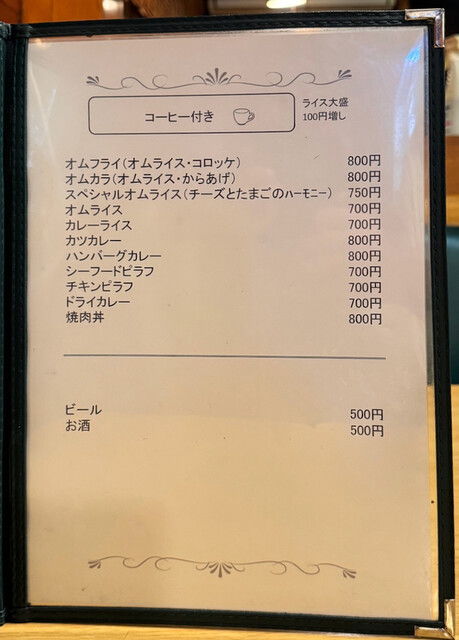 コーヒー付き
ライス大盛
100円増し
オムフライ(オムライス・コロッケ) 800円
オムカラ(オムライス・からあげ) 800円
スペシャルオムライス(チーズとたまごのﾊｰﾓﾆｰ) 750円
オムライス 700円
カレーライス 700円
カツカレー 800円
ハンバーグカレー 800円
シーフードピラフ 700円
チキンピラフ 700円
ドライカレー 700円
焼肉丼 800円
ビール 500円
お酒 500円